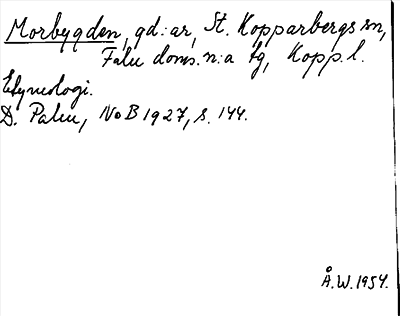 Morbygden, gd:ar, St. Kopparbergs sn,
Falu doms. n:a tg, Kopp. l.
Etymologi.
D. Palm, NoB 1927, s. 144.
Å.W. 1954.